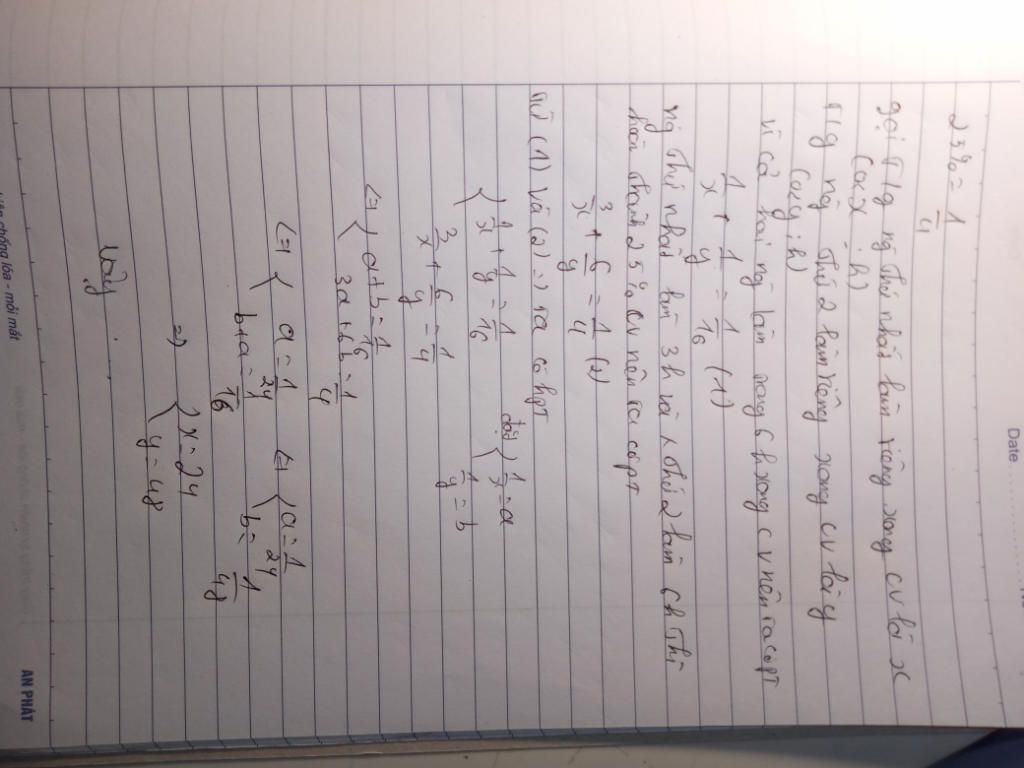 Date
25% = 1/4
gọi T/g ng thứ nhất làm riêng xong cv là x
(đk x; h)
T/g ng thứ 2 làm riêng xong cv là y
(đk y; h)
Vì cả hai ng làm xong 6 h xong cv nên ta có pt
1/x + 1/y = 1/16 (1)
ng thứ nhất làm 3h và thứ 2 làm 6h thì
hoàn thành 25% cv nên ta có pt
3/x + 6/y = 1/4 (2)
Từ (1) và (2) => ta có hpt
{ 1/x + 1/y = 1/16
3/x + 6/y = 1/4
đặt { 1/x = a
1/y = b
<=> { a + b = 1/16
3a + 6b = 1/4
<=> { a = 1/24
b + a = 1/16
<=> { a = 1/24
b = 1/48
=> { x = 24
y = 48
Vậy . .
chống lóa - mỏi mắt
AN PHÁT